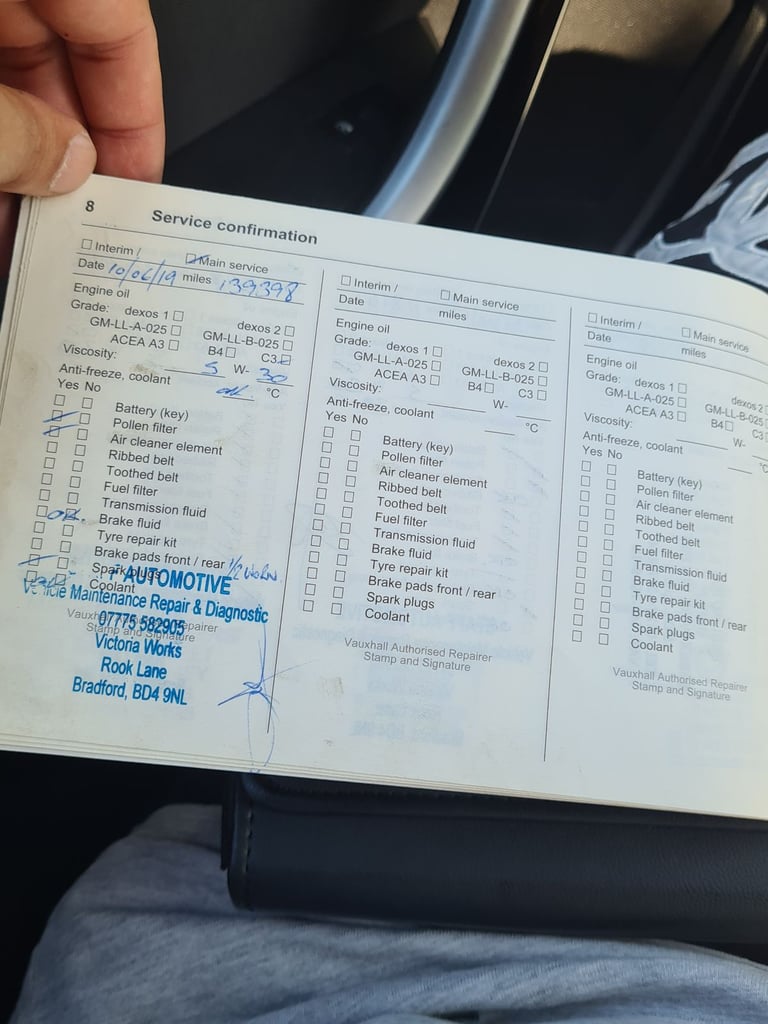 8 Service confirmation
☐ Interim / ☑ Main service
Date 10/06/19 miles 139398
Engine oil
Grade: dexos 1 ☐ dexos 2 ☐
GM-LL-A-025 ☐ GM-LL-B-025 ☐
ACEA A3 ☐ B4 ☐ C3 ☑
Viscosity: 5 W- 30
Anti-freeze, coolant ok °C
Yes No
Battery (key)
Pollen filter
Air cleaner element
Ribbed belt
Toothed belt
Fuel filter
Transmission fluid
ok Brake fluid
Tyre repair kit
Brake pads front / rear 1/2 worn
Spark plugs
Coolant
Vauxhall Authorised Repairer
Stamp and Signature
AUTOMOTIVE
Vehicle Maintenance Repair & Diagnostic
07775 582905
Victoria Works
Rook Lane
Bradford, BD4 9NL
☐ Interim / ☐ Main service
Date miles
Engine oil
Grade: dexos 1 ☐ dexos 2 ☐
GM-LL-A-025 ☐ GM-LL-B-025 ☐
ACEA A3 ☐ B4 ☐ C3 ☐
Viscosity: W-
Anti-freeze, coolant °C
Yes No
☐ ☐ Battery (key)
☐ ☐ Pollen filter
☐ ☐ Air cleaner element
☐ ☐ Ribbed belt
☐ ☐ Toothed belt
☐ ☐ Fuel filter
☐ ☐ Transmission fluid
☐ ☐ Brake fluid
☐ ☐ Tyre repair kit
☐ ☐ Brake pads front / rear
☐ ☐ Spark plugs
☐ ☐ Coolant
Vauxhall Authorised Repairer
Stamp and Signature
☐ Interim / ☐ Main service
Date miles
Engine oil
Grade: dexos 1 ☐ dexos 2
GM-LL-A-025 ☐ GM-LL-B-025
ACEA A3 ☐ B4 ☐ C3
Viscosity: W-
Anti-freeze, coolant °C
Yes No
☐ ☐ Battery (key)
☐ ☐ Pollen filter
☐ ☐ Air cleaner element
☐ ☐ Ribbed belt
☐ ☐ Toothed belt
☐ ☐ Fuel filter
☐ ☐ Transmission fluid
☐ ☐ Brake fluid
☐ ☐ Tyre repair kit
☐ ☐ Brake pads front / rear
☐ ☐ Spark plugs
☐ ☐ Coolant
Vauxhall Authorised Repairer
Stamp and Signature